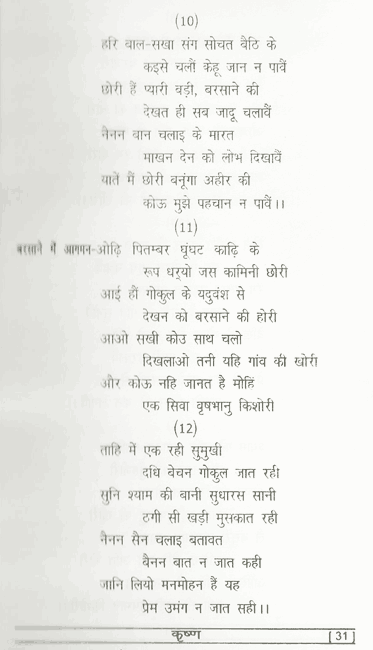 (10)
हरि बाल-सखा संग सोचत बैठि के
कइसे चलौं केहू जान न पावैं
छोरी हैं प्यारी बड़ी, बरसाने की
देखत ही सब जादू चलावैं
नैनन बान चलाइ के मारत
माखन देन को लोभ दिखावैं
यातें मैं छोरी बनूंगा अहीर की
कोऊ मुझे पहचान न पावैं।।
(11)
बरसाने में आगमन-ओढ़ि पितम्बर घूंघट काढ़ि के
रूप धर्‌यो जस कामिनी छोरी
आई हौं गोकुल के यदुवंश से
देखन को बरसाने की होरी
आओ सखी कोउ साथ चलो
दिखलाओ तनी यहि गांव की खोरी
और कोऊ नहि जानत है मोहिं
एक सिवा वृषभानु किशोरी
(12)
ताहि में एक रही सुमुखी
दधि बेचन गोकुल जात रही
सुनि श्याम की बानी सुधारस सानी
ठगी सी खड़ी मुसकात रही
नैनन सैन चलाइ बतावत
बैनन बात न जात कही
जानि लियो मनमोहन हैं यह
प्रेम उमंग न जात सही।।
कृष्ण [31]